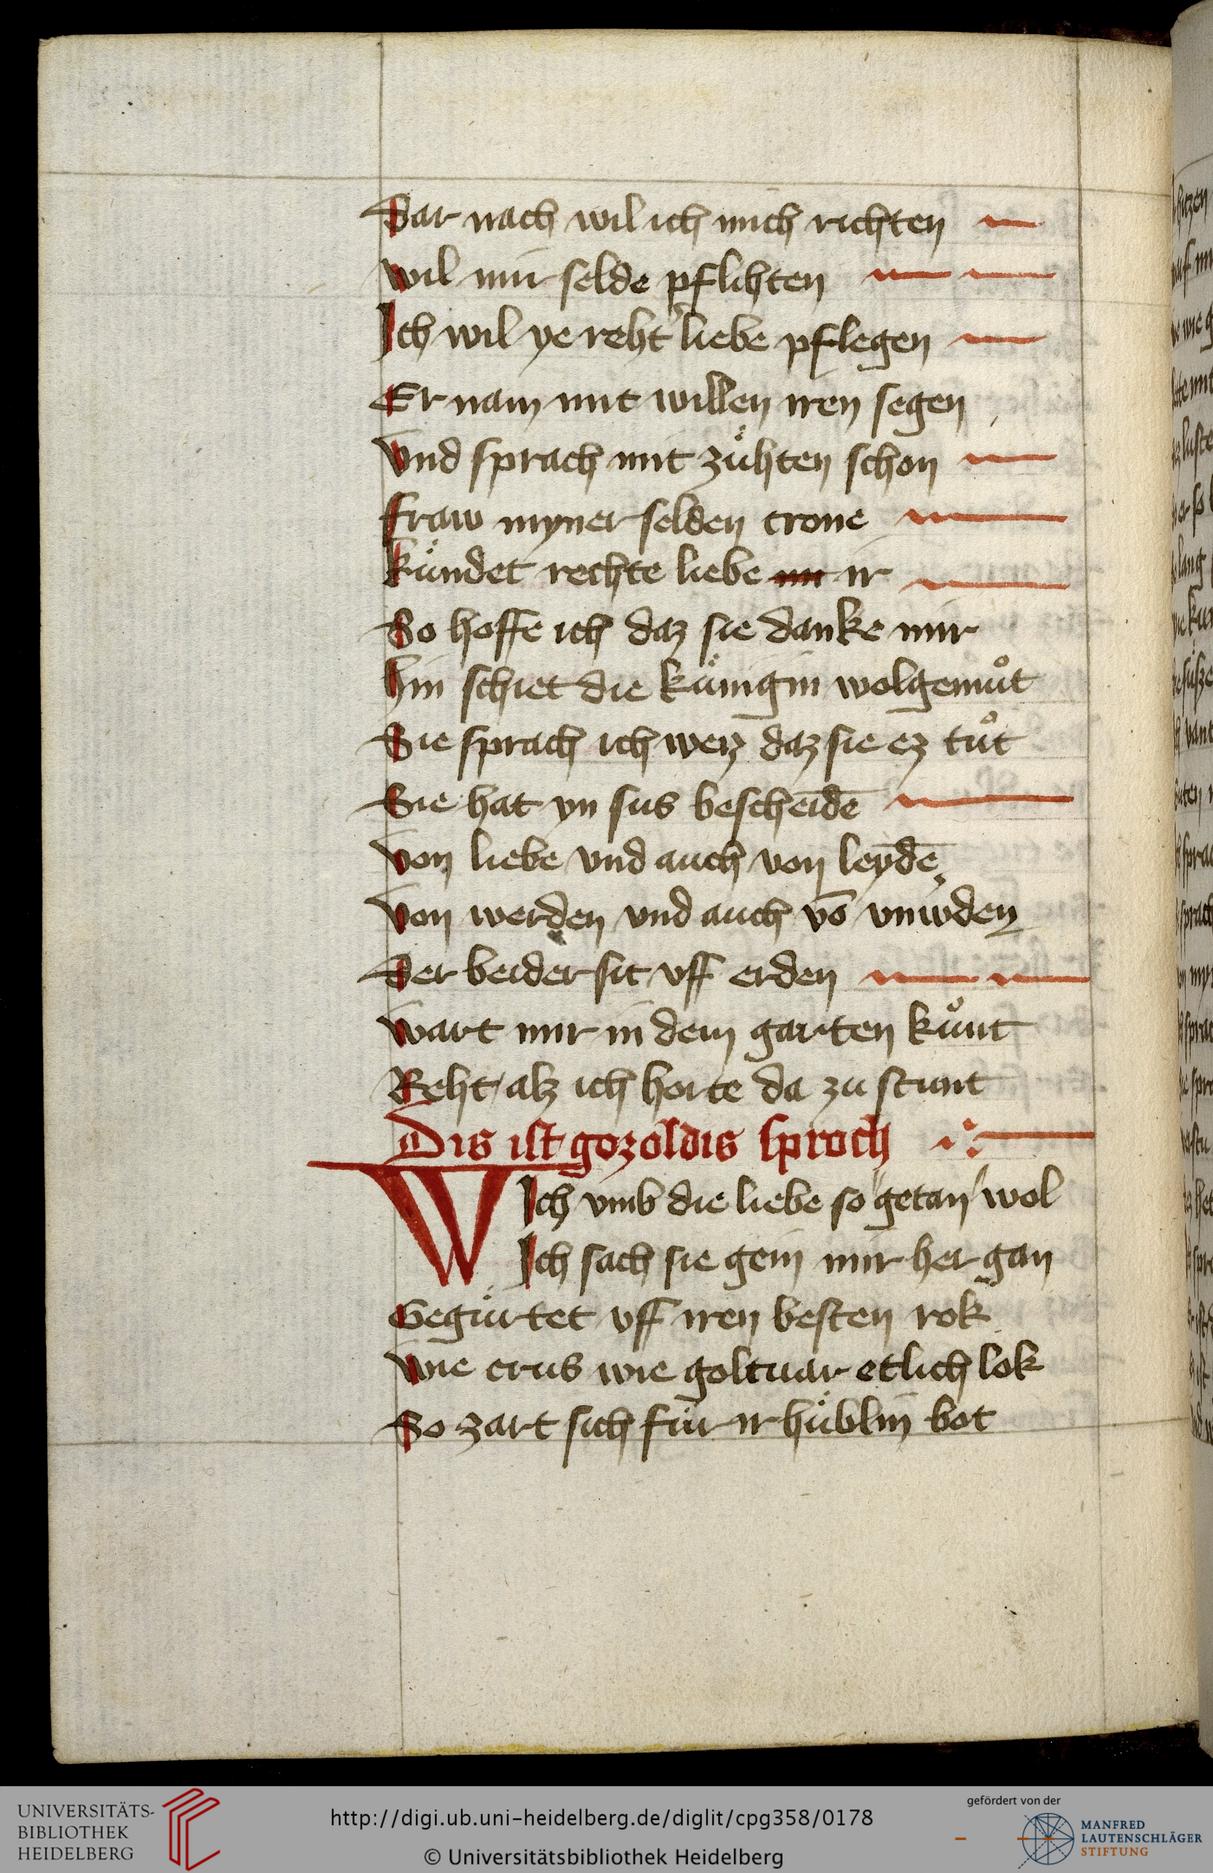 Dar nach wil ich mich richten
wil mir selde pflihten
Ich wil ye reht' liebe pflegen
Er nam mit willen iren segen
Vnd sprach mit zuͤhten schon
fraw myner selden crone
kuͤndet rechte liebe ir
So hoffe ich daz sie danke mir
hin schiet die kuͤnigin wolgemuͦt
Sie sprach ich weyz daz sie ez tuͦt
Sie hat yn sus bescheidē
Von liebe vnd auch von leydē
Von werden vnd auch vō vnw'den
Der beider sit vff erden
wart mir in dem garten kuͦnt
Reht alz ich horte da zu stunt
Dis ist gozoldis sproch
WIch vmb die liebe so getan wol
Ich sach sie gein mir her gan
Geguͤrtet vff iren besten rok
wie crus wie goltuar etlich lok
So zart sich fuͤr ir huͤblin bot
UNIVERSITÄTS-
BIBLIOTHEK
HEIDELBERG
http://digi.ub.uni-heidelberg.de/diglit/cpg358/0178
© Universitätsbibliothek Heidelberg
gefördert von der
MANFRED
LAUTENSCHLÄGER
STIFTUNG